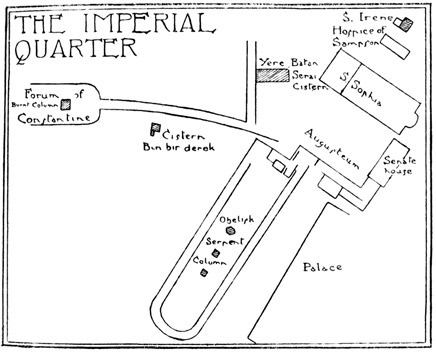 THE IMPERIAL
QUARTER
S. Irene
Hospice of
Sampson
Yere Baton
Serai
Cistern
S. Sophia
Forum of
Burnt Column
Constantine
Cistern
Bin bir derek
Augusteum
Senate
house
Obelisk
Serpent
Column
Palace